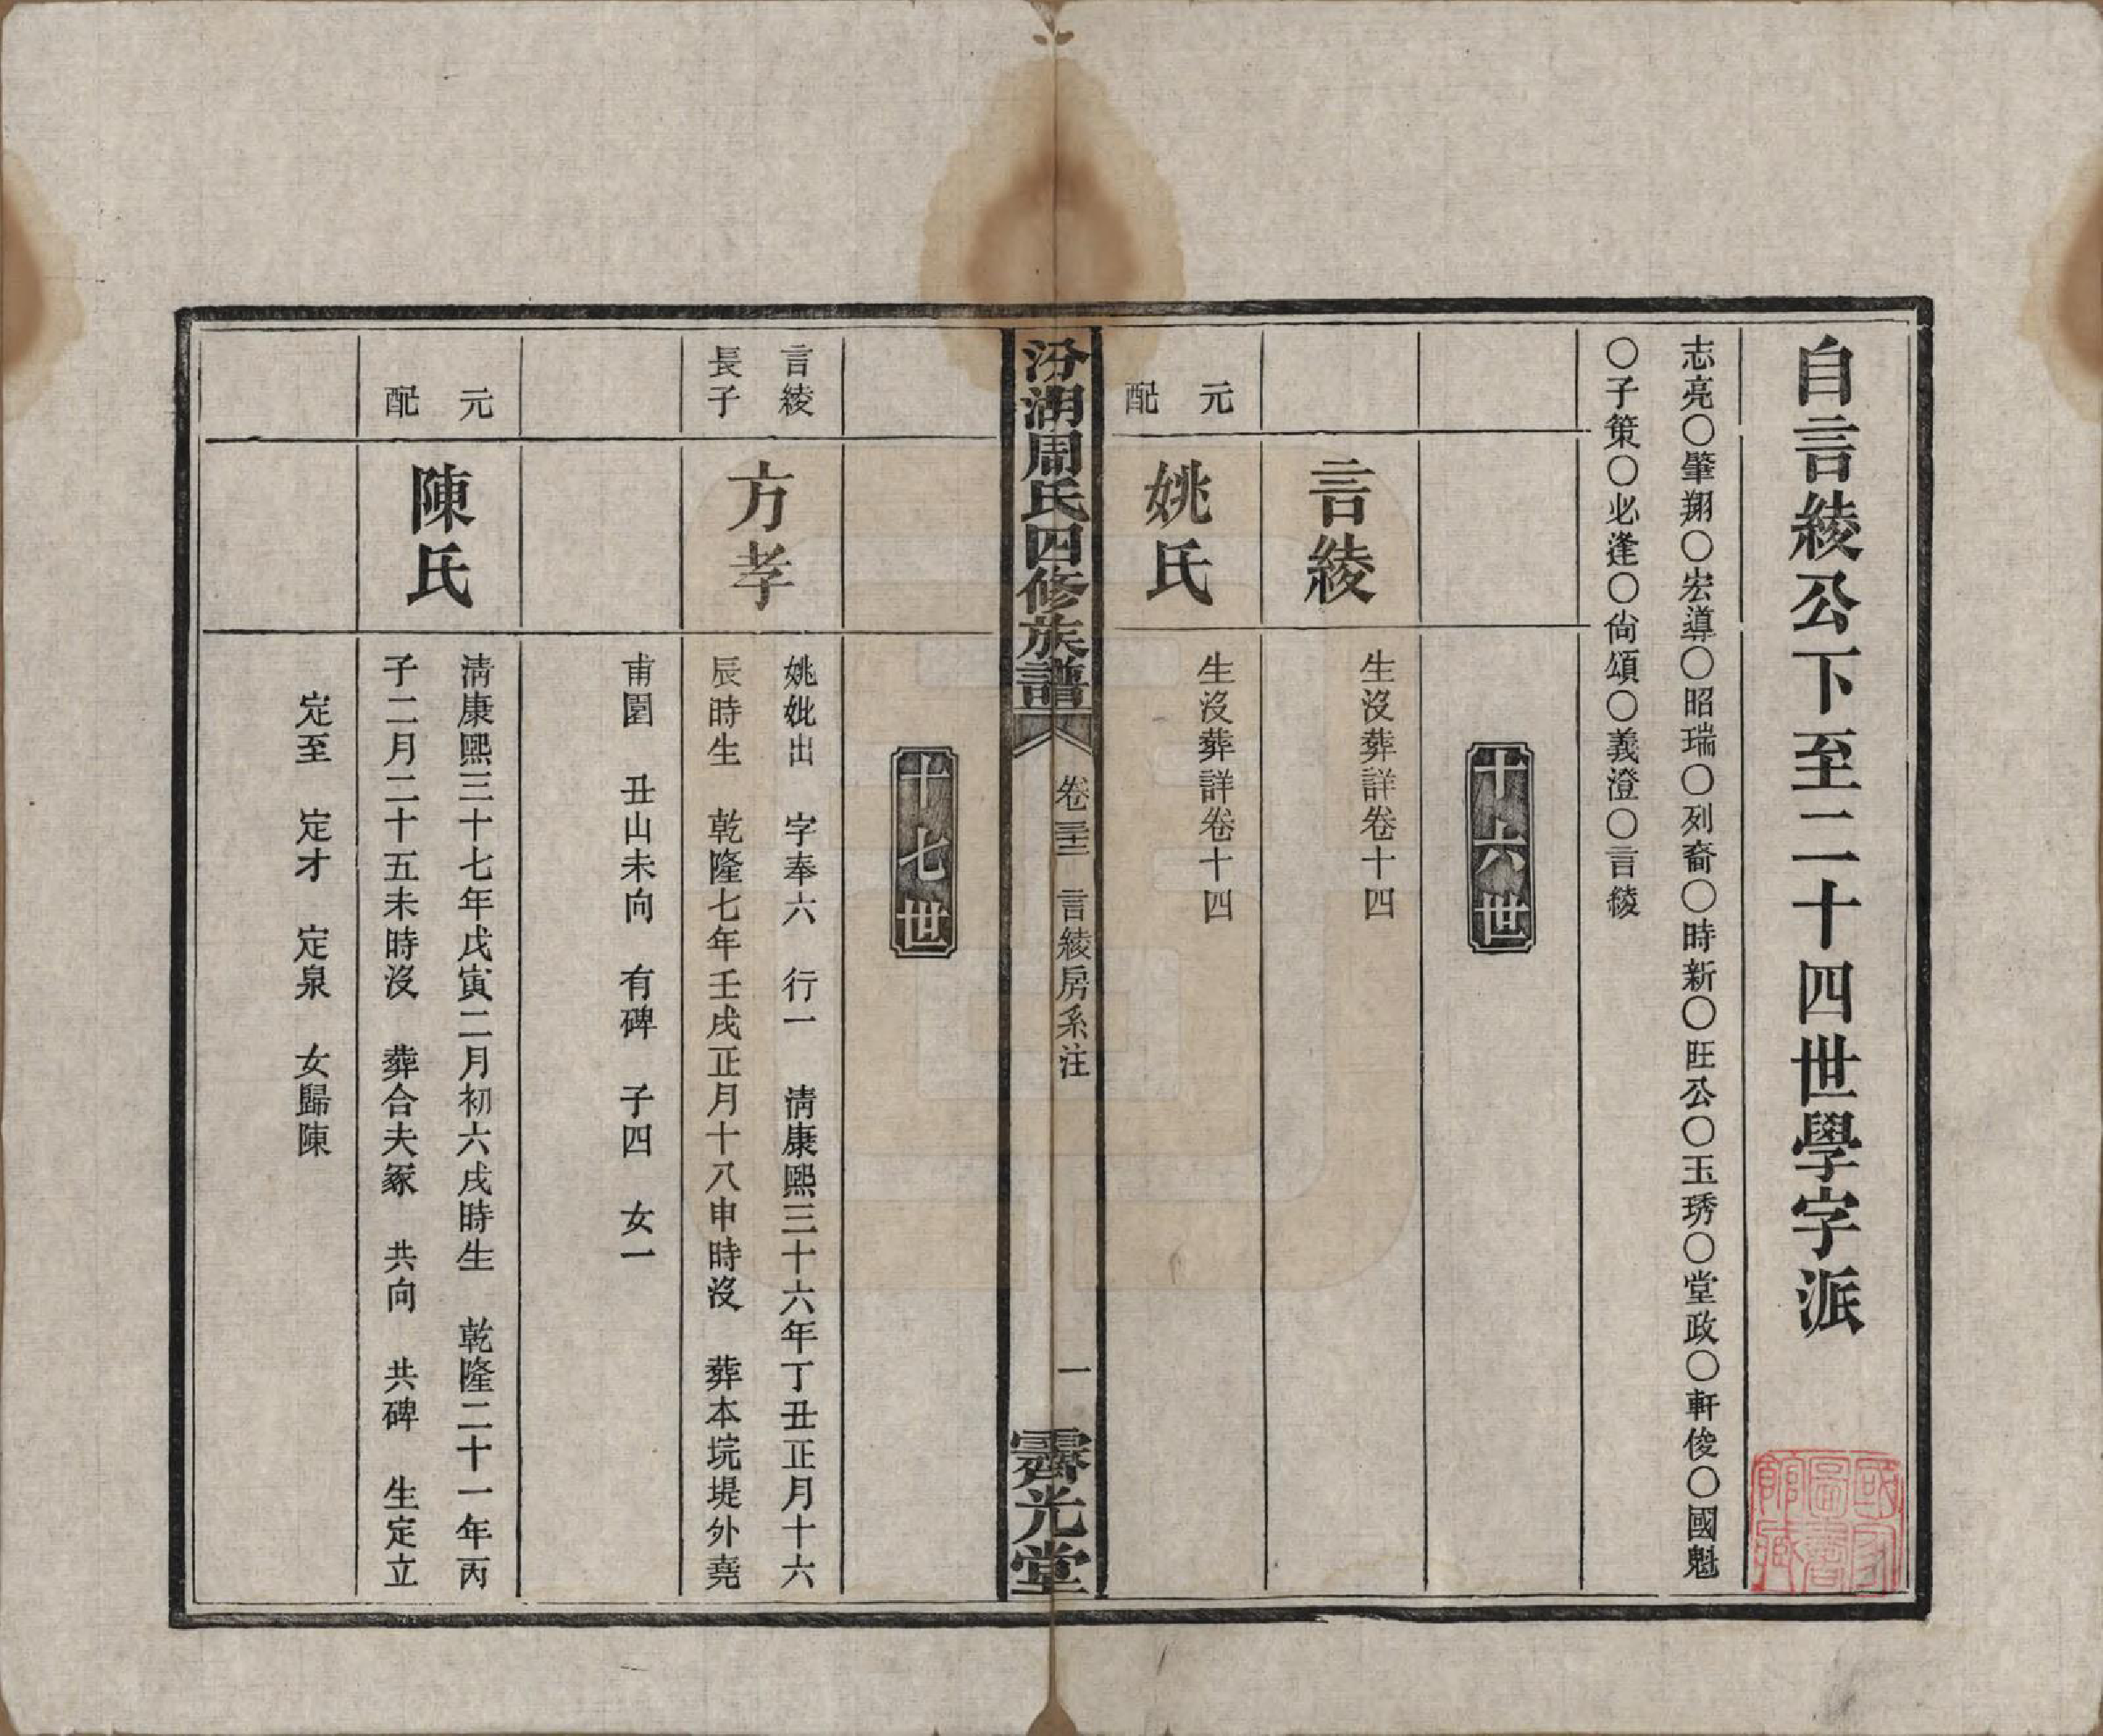 自言綾公下至二十四世學字派
志亮〇肇翔〇宏導〇昭瑞〇列裔〇時新〇旺公〇玉琇〇堂政〇軒俊〇國魁
〇子策〇必逢〇尙頌〇義澄〇言綾
十六世
言綾
生沒葬詳卷十四
元配
姚氏
生沒葬詳卷十四
汾湖周氏四修族譜
卷三十三
言綾房系注
一
霽光堂
十七世
言綾
長子
方孝
姚妣出 字奉六 行一 淸康熙三十六年丁丑正月十六
辰時生 乾隆七年壬戌正月十八申時沒 葬本垸堤外堯
甫園 丑山未向 有碑 子四 女一
元配
陳氏
淸康熙三十七年戊寅二月初六戌時生 乾隆二十一年丙
子二月二十五未時沒 葬合夫冢 共向 共碑 生定立
定至 定才 定泉 女歸陳
國家圖書館藏